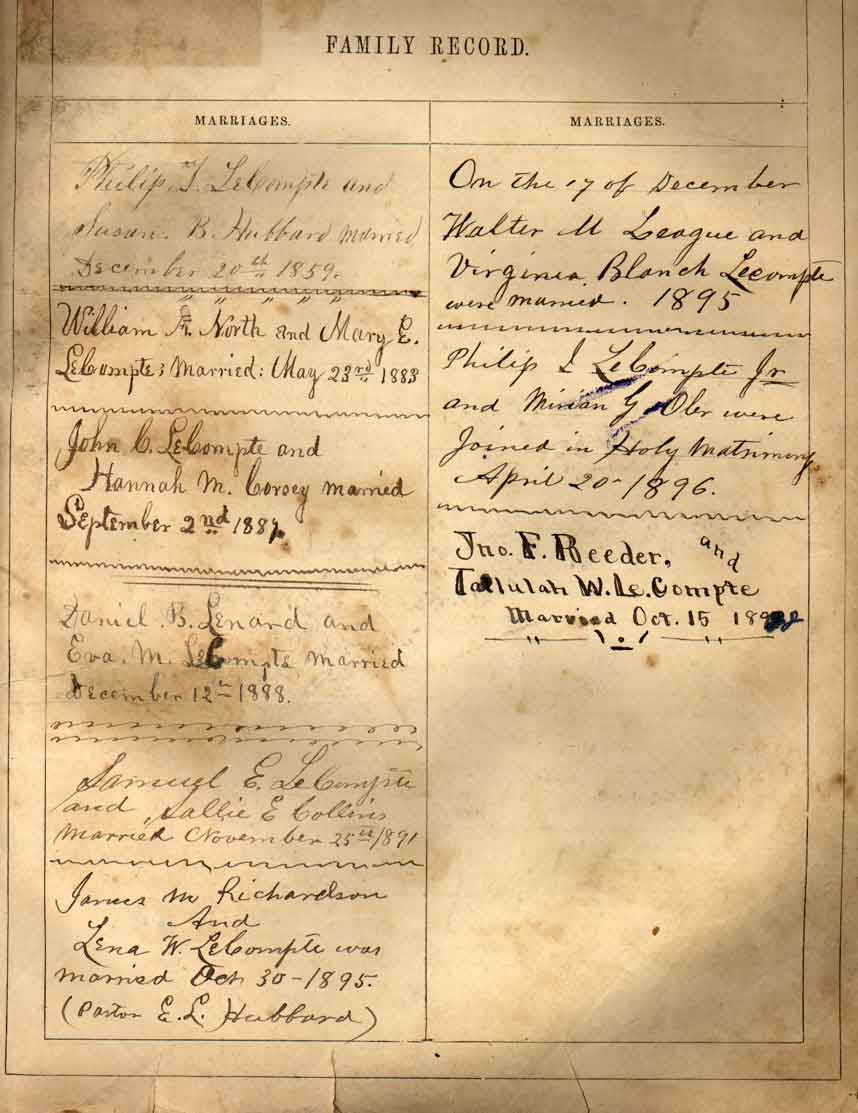 FAMILY RECORD.
MARRIAGES.
Philip T. LeCompte and
Susan. B. Hubbard married
December 20th 1859.
William H. North and Mary E.
LeCompte; Married: May 23rd 1883
John C. LeCompte and
Hannah M. Corsey married
September 2nd 188
Daniel. B. Lenard and
Eva. M. LeCompte married
December 12th 1888.
Samuel E. LeCompte
and Sallie E Collins
Married November 25th 1891
James M Richardson
And
Lena W. LeCompte was
married Oct 30-1895.
(Pastor E. L. Hubbard)
MARRIAGES.
On the 17 of December
Walter M League and
Virginia Blanch Lecompte
were married. 1895
Philip I LeCompte Jr
and Mirian G Ober were
Joined in Holy Matrimony
April 20-1896.
Jno. F. Reeder, and
Tallulah W. Le.Compte
Married Oct. 15